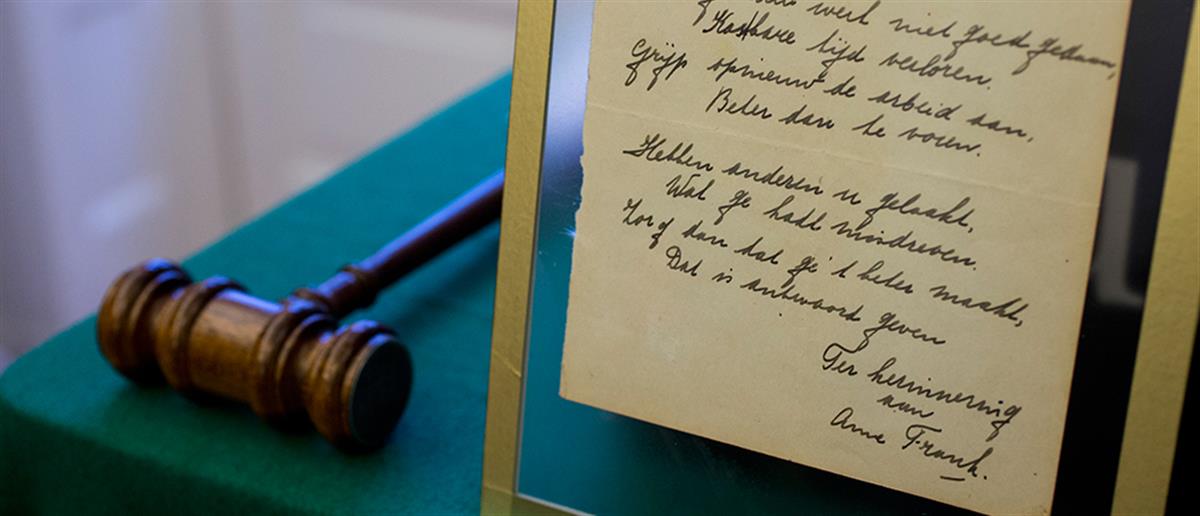 werk niet goed gedaan,
Kostbare tijd verloren.
Grijp opnieuw de arbeid aan,
Beter dan te voren.
Hebben anderen u gelaakt,
Wat ge hadt misdreven.
Zorg dan dat ge 't beter maakt,
Dat is antwoord geven
Ter herinnering
aan
Anne Frank.